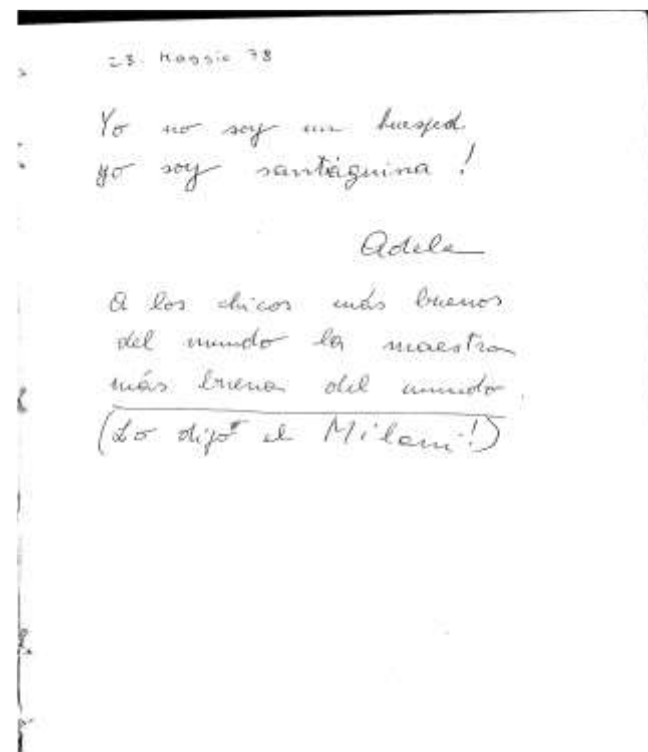 23. Maggio 78
Yo no soy un huesped.
yo soy santáguina!
Adela
A los chicos más buenos
del mundo la maestra
más buena del mundo.
(Lo dijo el Milani!)